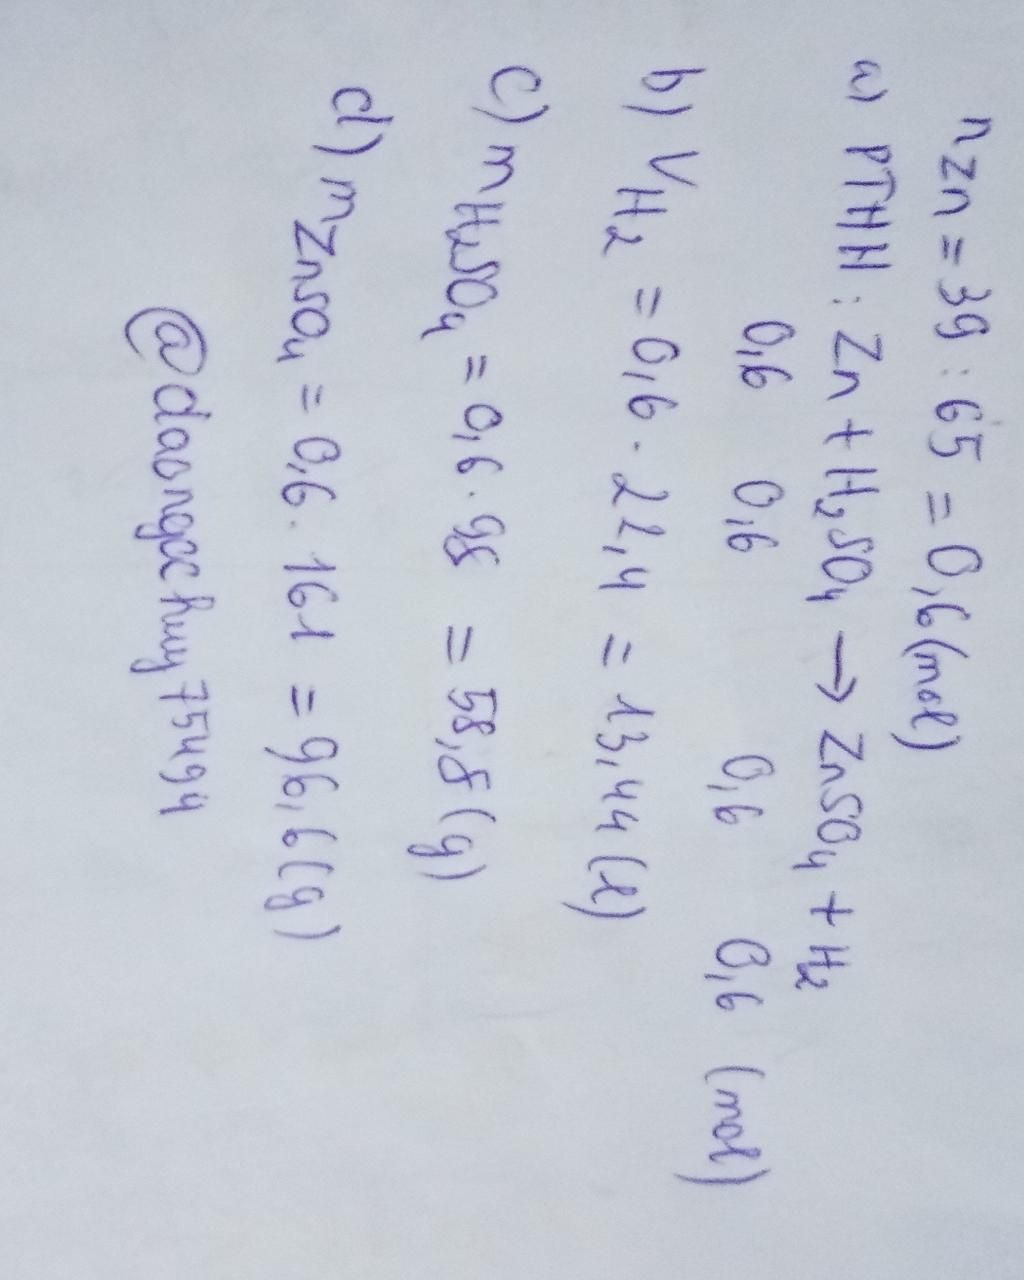 n Zn = 39 : 65 = 0,6 (mol)
a) PTHH : Zn + H₂SO₄ → ZnSO₄ + H₂
0,6 0,6 0,6 0,6 (mol)
b) V H₂ = 0,6 . 22,4 = 13,44 (l)
c) m H₂SO₄ = 0,6 . 98 = 58,8 (g)
d) m ZnSO₄ = 0,6 . 161 = 96,6 (g)
@daongocchuy75494